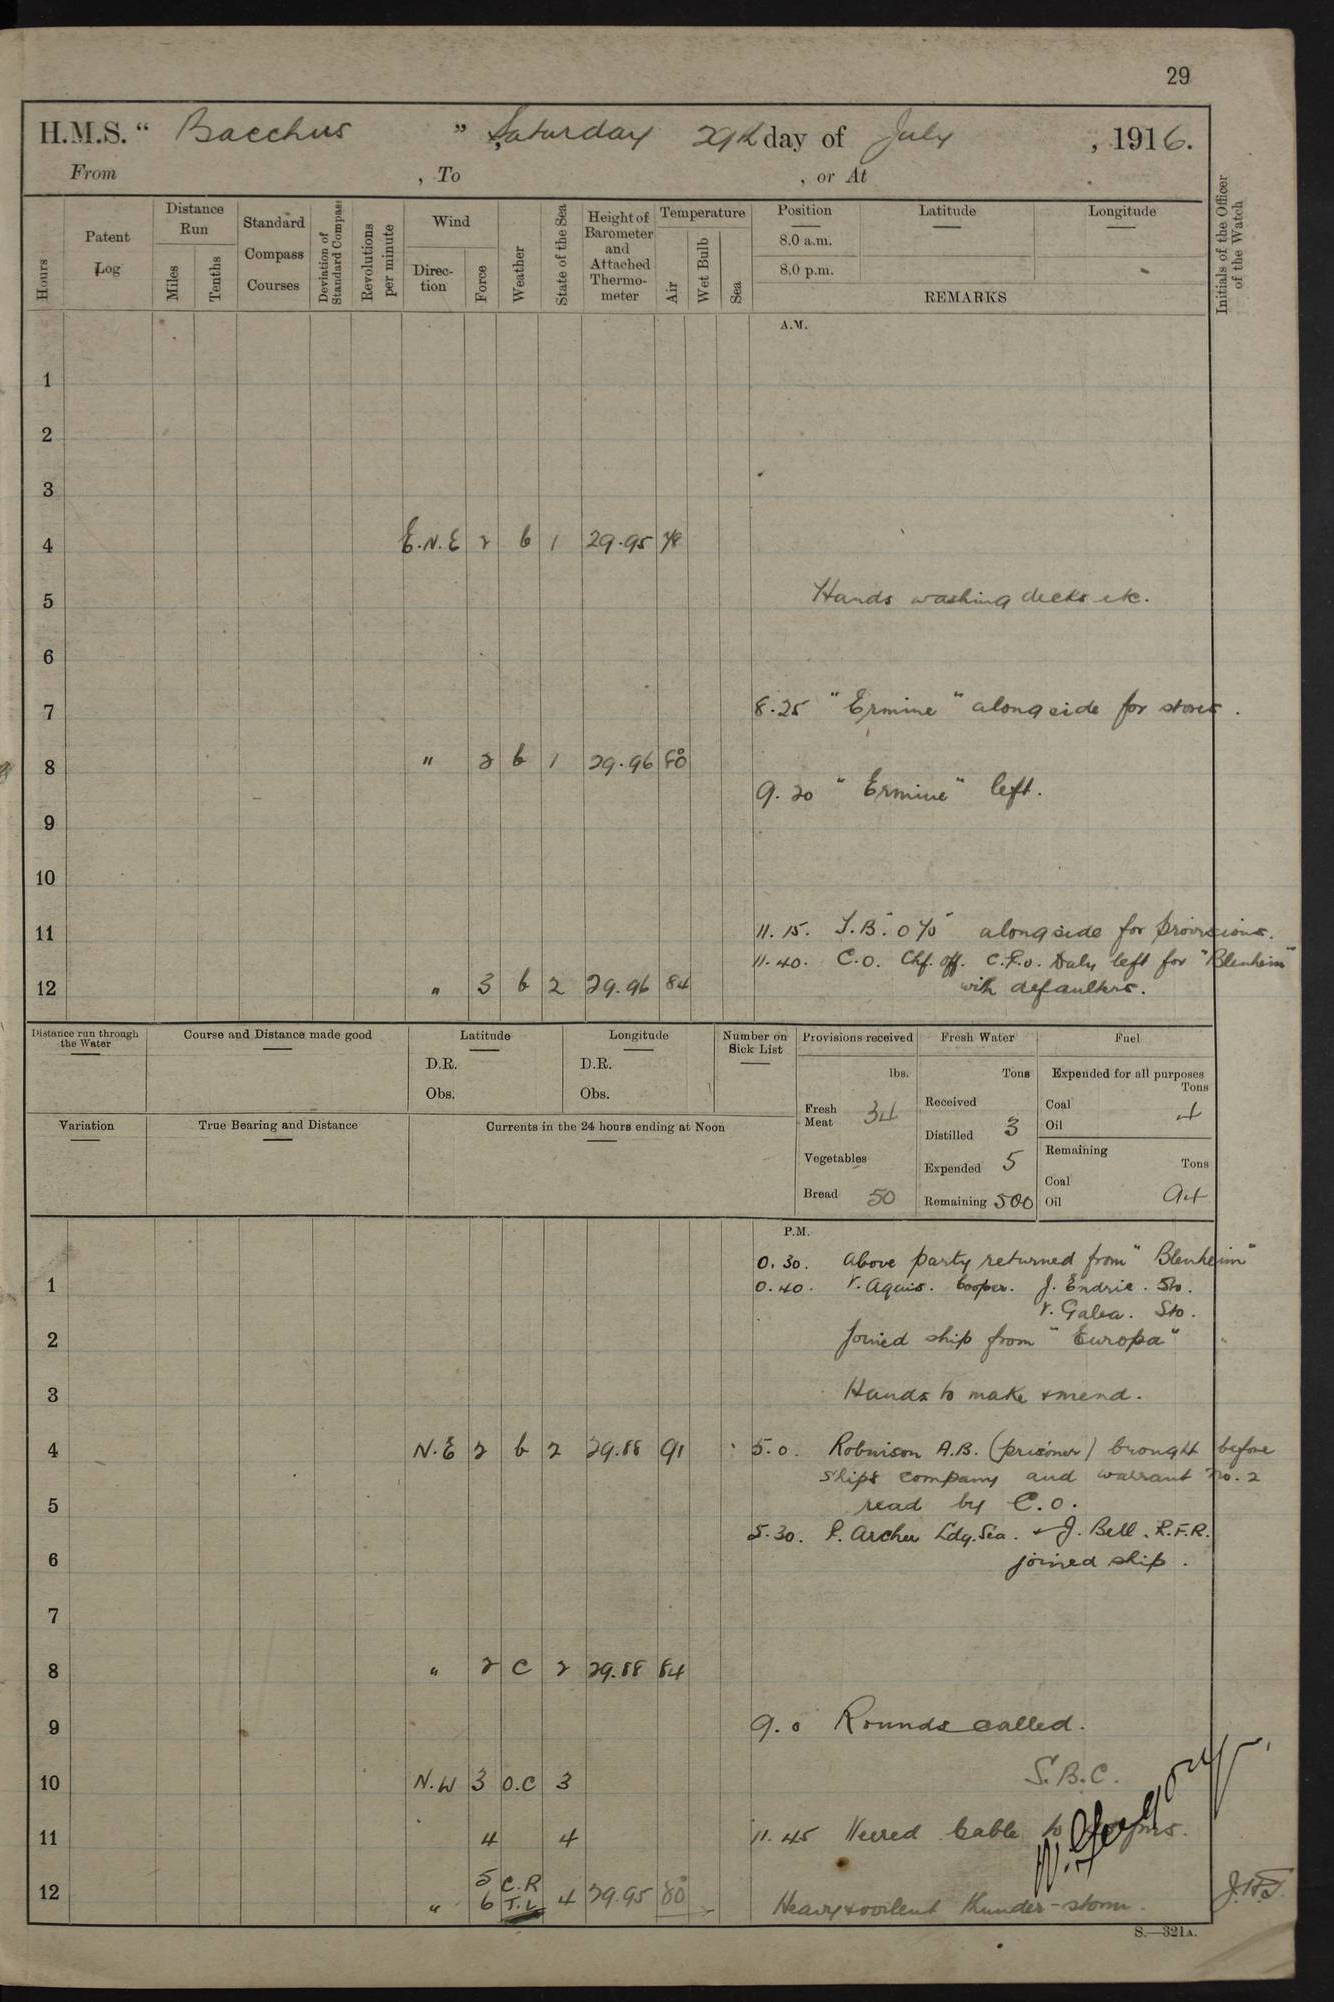 29
H.M.S. " Bacchus " Saturday 29th day of July , 1916.
From , To , or At
Hours
Patent Log
Distance Run
Miles
Tenths
Standard Compass Courses
Deviation of Standard Compass
Revolutions per minute
Wind
Direction
Force
Weather
State of the Sea
Height of Barometer and Attached Thermometer
Temperature
Air
Wet Bulb
Sea
Position
8.0 a.m.
8.0 p.m.
Latitude
Longitude
REMARKS
Initials of the Officer of the Watch
A.M.
1
2
3
4 E.N.E 2 b 1 29.95 78
5 Hands washing decks etc.
6
7 8.25 "Ermine" alongside for stores.
8 " 2 b 1 29.96 80
9.20 "Ermine" left.
9
10
11 11.15. T.B. "070" alongside for provisions.
11.40. C.O. Chf. Off. C.P.O. Daly left for "Blenheim"
12 " 3 b 2 29.96 84 with defaulters.
Distance run through the Water
Course and Distance made good
Latitude
D.R.
Obs.
Longitude
D.R.
Obs.
Number on Sick List
Provisions received
lbs.
Fresh Meat 34
Vegetables
Bread 50
Fresh Water
Tons
Received
Distilled 3
Expended 5
Remaining 500
Fuel
Expended for all purposes
Tons
Coal
Oil 4
Remaining
Tons
Coal
Oil 94
Variation
True Bearing and Distance
Currents in the 24 hours ending at Noon
P.M.
0.30. Above party returned from "Blenheim"
1 0.40. V. Aquis. Cooper. J. Endric. Sto.
V. Galea. Sto.
2 Joined ship from "Europa"
3 Hands to make & mend.
4 N.E 2 b 2 29.88 91 5.0. Robinson A.B. (prisoner) brought before
ships company and warrant No. 2
5 read by C.O.
5.30. P. Archer Ldg. Sea. & J. Bell. R.F.R.
6 joined ship.
7
8 " 2 c 2 29.88 84
9 9.0 Rounds called.
10 N.W 3 O.C 3 S.B.C.
11 4 4 11.45 Veered Cable to
5 C.R
12 " 6 T.L 4 29.95 80 Heavy & voilent thunder-storm.
S.—321A.